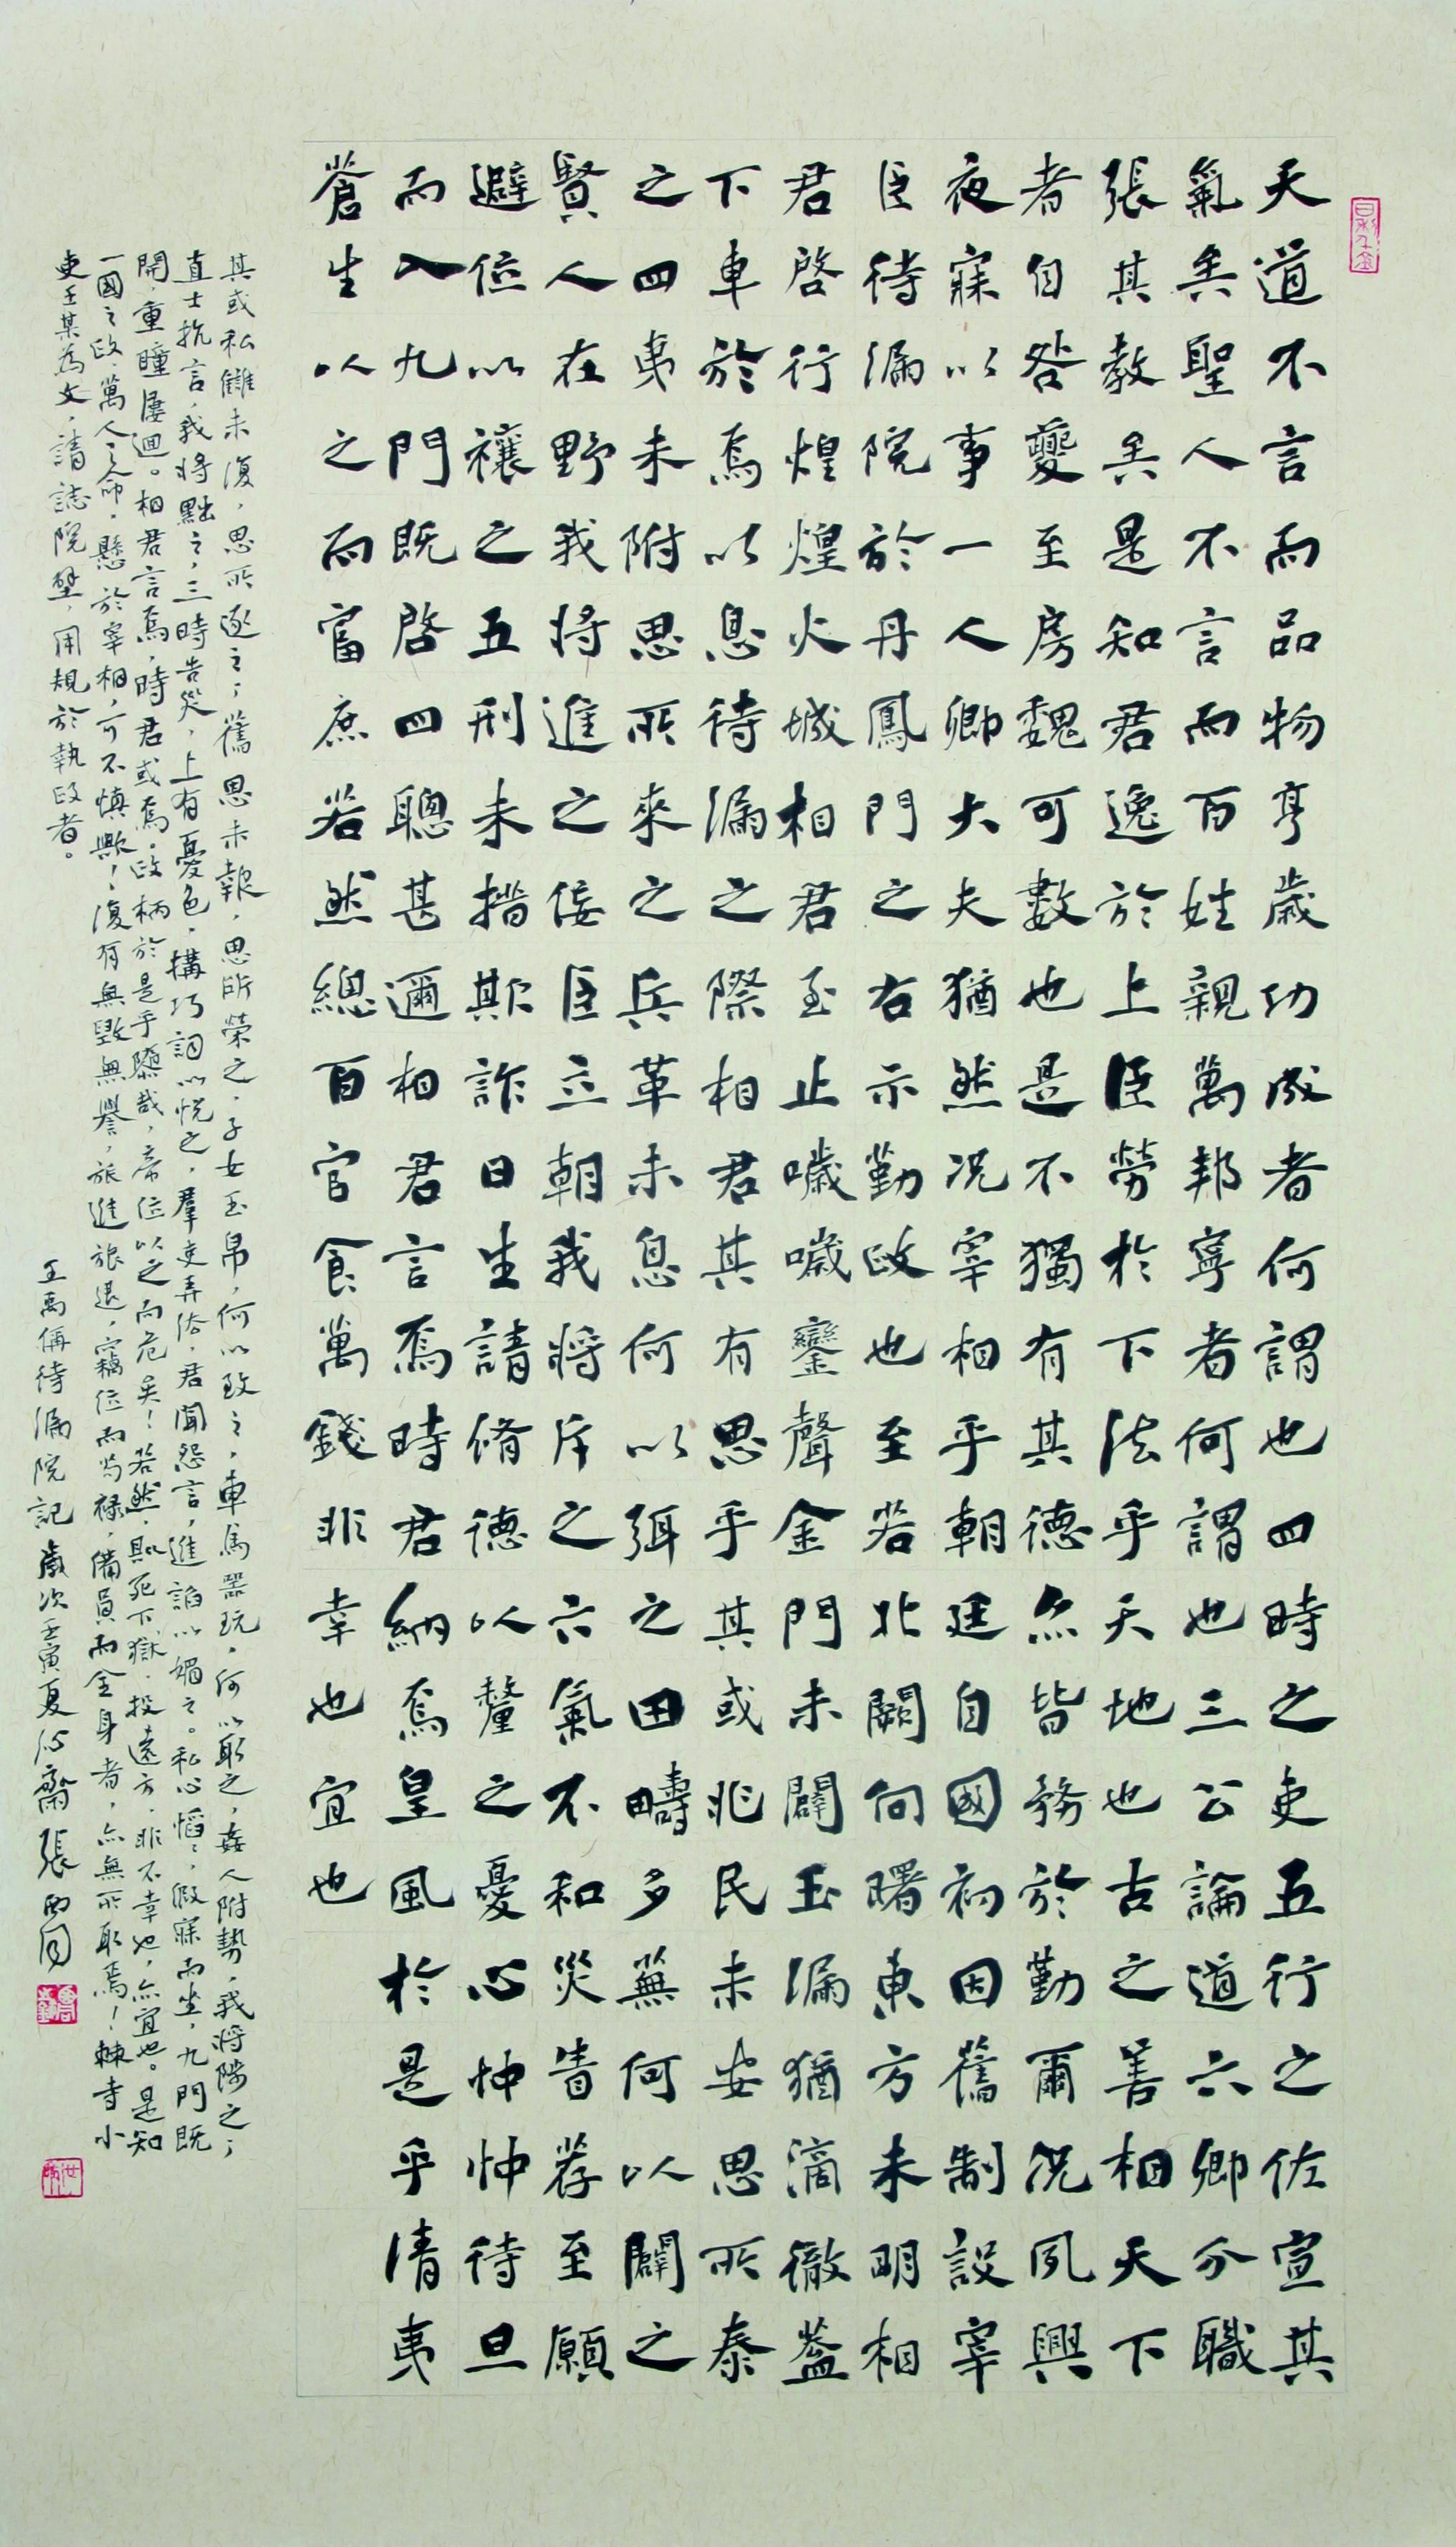 天道不言而品物亨歲功成者何謂也四時之吏五行之佐宣其
氣矣聖人不言而百姓親萬邦寧者何謂也三公論道六卿分職
張其教矣是知君逸於上臣勞於下法乎天地也古之善相天下
者自咎夔至房魏可數也是不獨有其德亦皆務於勤爾況夙興
夜寐以事一人卿大夫猶然況宰相乎朝廷自國初因舊制設宰
臣待漏院於丹鳳門之右示勤政也至若北闕向曙東方未明相
君啓行煌煌火城相君至止噦噦鑾聲金門未闢玉漏猶滴徹蓋
下車於焉以息待漏之際相君其有思乎其或兆民未安思所泰
之四夷未附思所來之兵革未息何以弭之田疇多蕪何以闢之
賢人在野我將進之佞臣立朝我將斥之六氣不和災眚荐至願
避位以禳之五刑未措欺詐日生請脩德以釐之憂心忡忡待旦
而入九門既啓四聰甚邇相君言焉時君納焉皇風於是乎清夷
蒼生以之而富庶若然總百官食萬錢非幸也宜也
其或私讎未復，思所逐之；舊恩未報，思所榮之，子女玉帛，何以致之，車馬器玩，何以取之，姦人附勢，我將陟之；
直士抗言，我將黜之，三時告災，上有憂色，構巧詞以悅之，羣吏弄法，君聞怨言，進諂以媚之。私心慆〻，假寐而坐，九門既
開，重瞳屢迴。相君言焉，時君或焉。政柄於是乎隳哉，帝位以之而危矣！若然，則死下獄，投遠方，非不幸也，亦宜也。是知
一國之政，萬人之命，懸於宰相，可不慎歟！復有無毀無譽，旅進旅退，竊位而苟祿，備員而全身者，亦無所取焉！棘寺小
吏王某為文，請誌院壁，用規於執政者。
王禹偁待漏院記 歲次壬寅夏 心齋 張